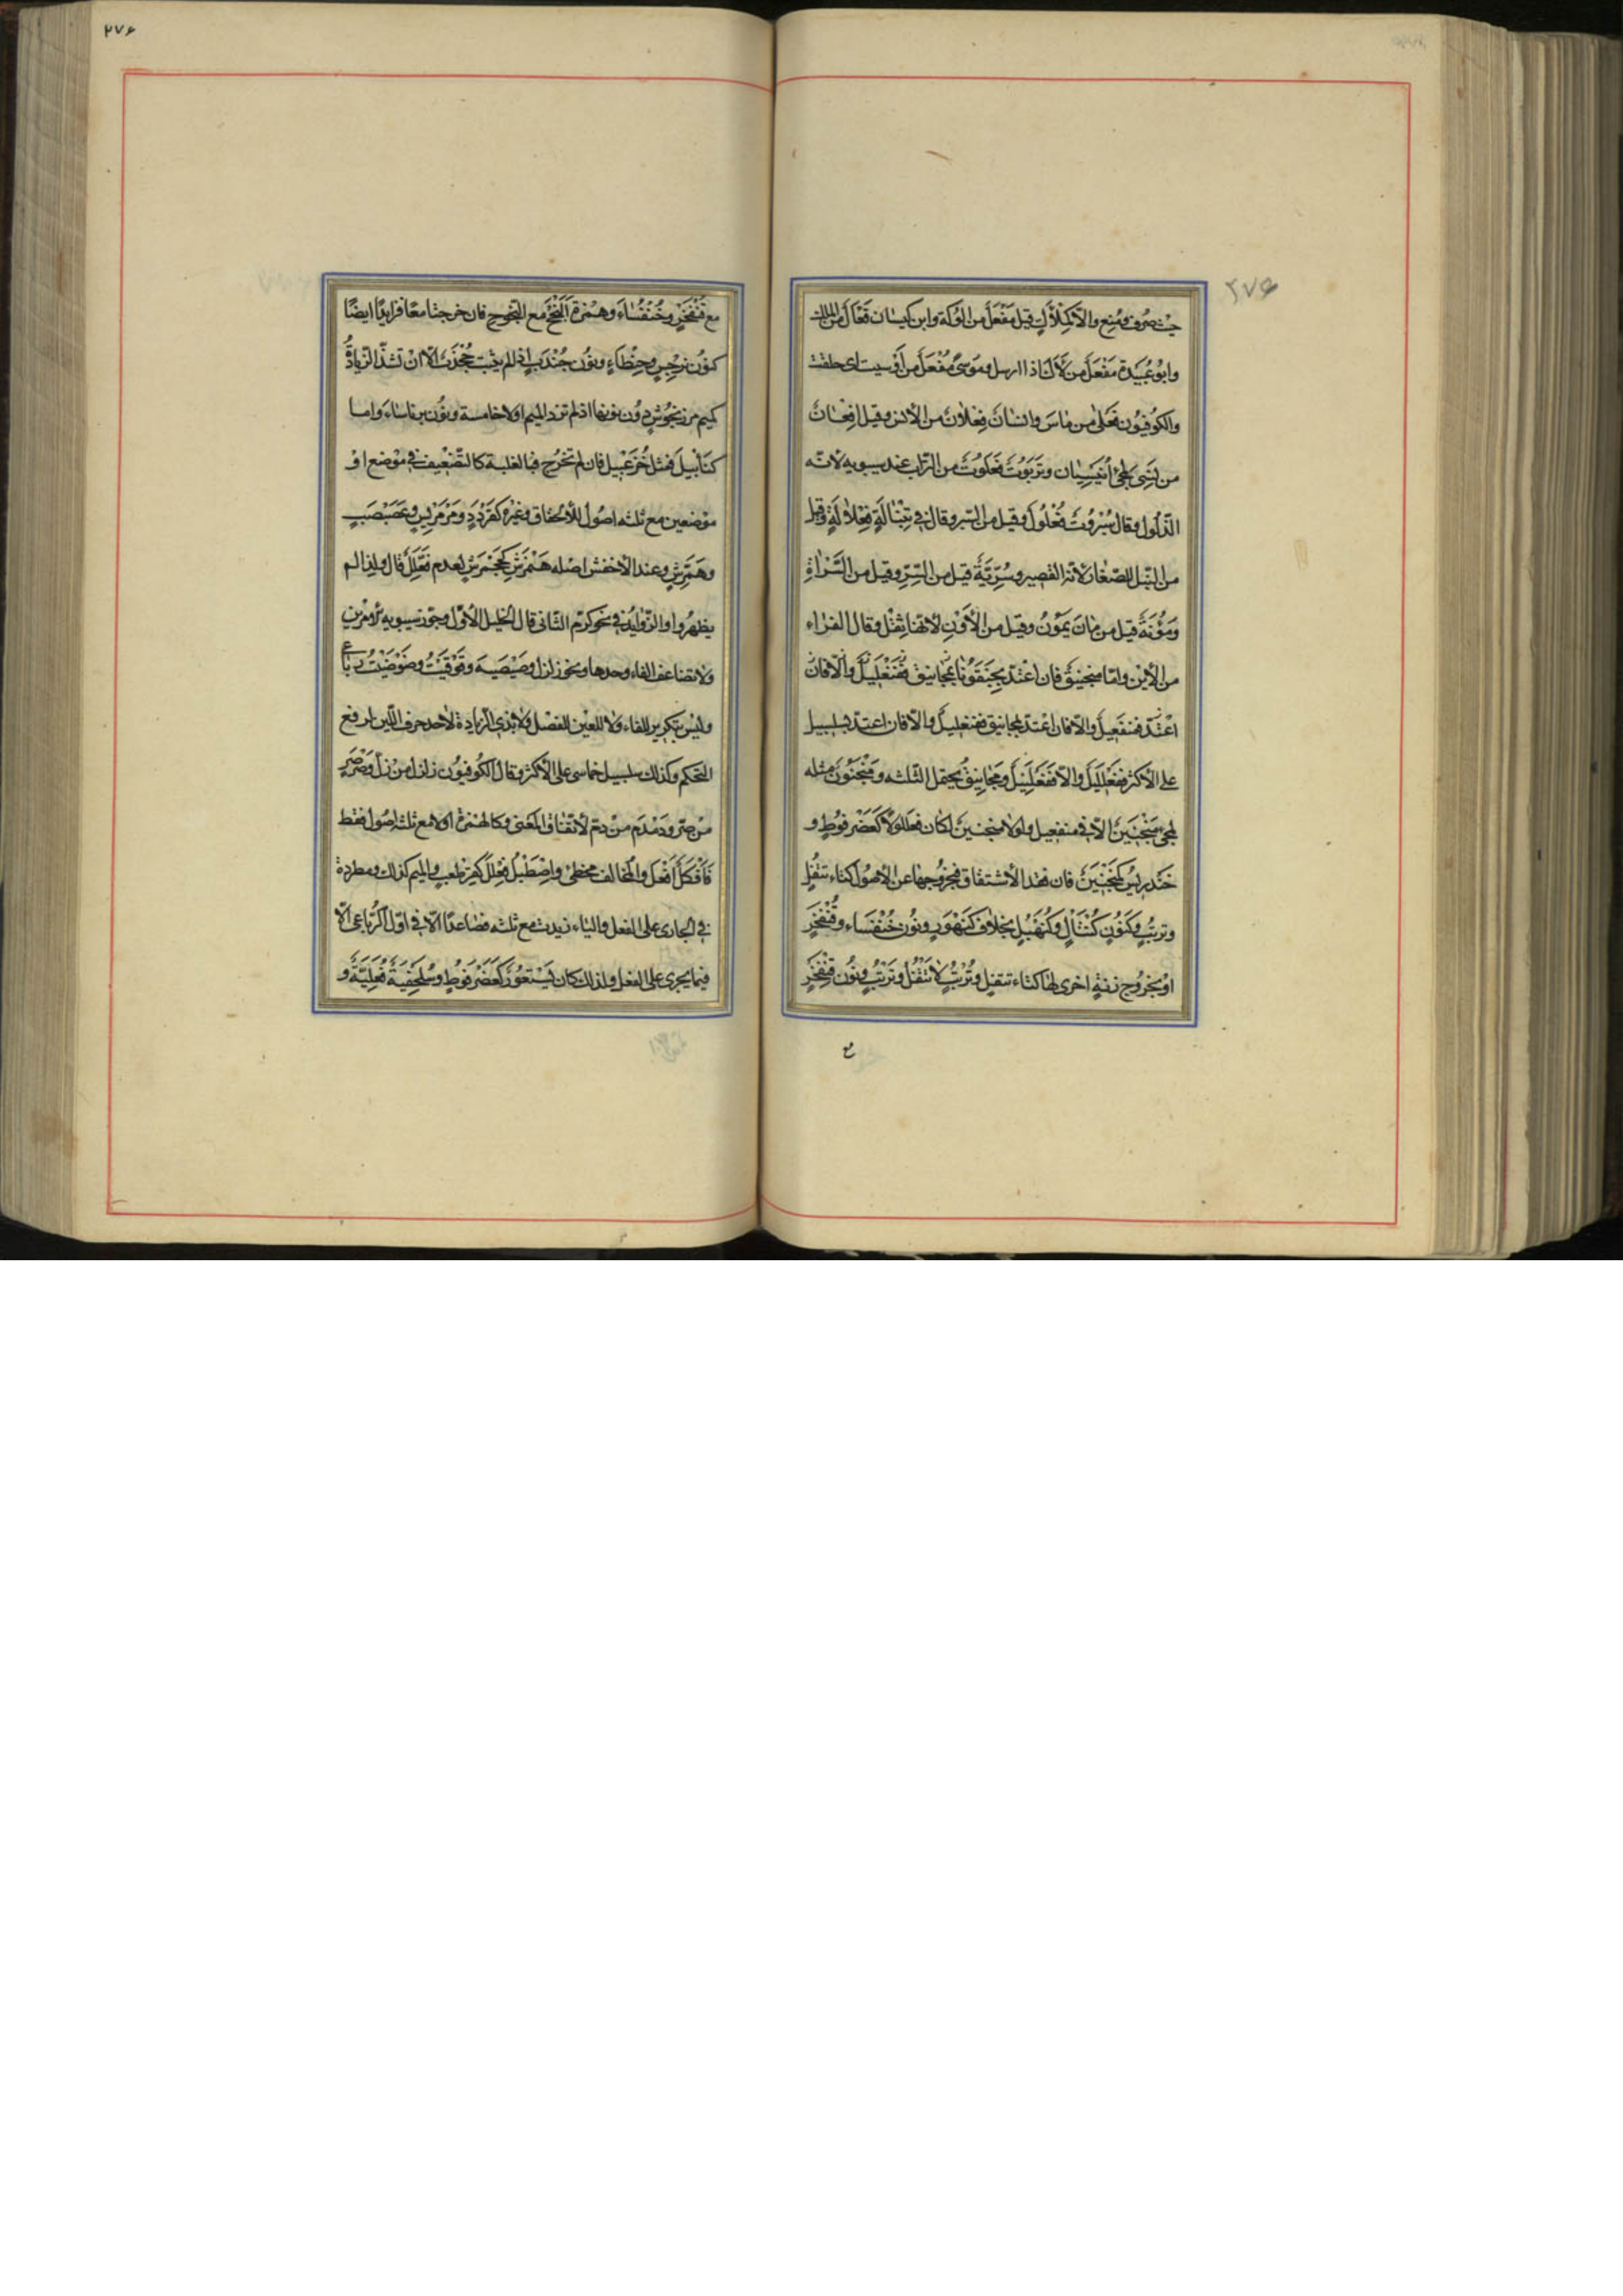 حيث صرف ومنع والا فكملأك قيل مفعل من الوكة وابن كيسان فعأل من الملك
وابو عبيدة مفعل من لأك اذا ارسل وموسى مفعل من اوسيت اى حلقت
والكوفيون فعلى من ماس وانسان فعلان من الانس وقيل افعان
من نسى لمجئ انيسيان وتربوت فعلوت من التراب عند سيبويه لانّه
الذّلول وقال سُبْرُوتٌ فُعْلُولٌ وقيل من السّبر وقال فى تِنْبَالَةٍ فِعْلَالَةٍ وقيل
من النّبل للصّغار لانّه القصير وسُرِّيَّةٌ قيل من السِّرِّ وقيل من السَّرَاةِ
وَمَؤُنَةٌ قيل من مَانَ يَمُونُ وقيل من الأَوْنِ لانّها ثِقْلٌ وقال الفرّاء
من الأين وامّا منجنيق فان اعتدّ بجنقونا فمنفعيل والّا فان
اعتدّ فنفعيل والّا فان اعتدّ بمجانيق ففنعليل والّا فان اعتدّ بسلسبيل
على الاكثر ففعلليل والّا ففعلنيل ومجانيق يحتمل الثلثه ومنجنون مثله
لمجئ منجنين الّا فى منفعيل ولولا منجنين لكان فعللولا كعضرفوط و
خندريس كمنجنين فان فقد الأشتقاق فبخروجها عن الاصول كتاء تتفل
وترتب وكنون كنتأل وكنهبل بخلاف كنهور ونون خنفساء وقنفخر
او بخروج زنة اخرى لها كتاء تتفل وترتب لا تتفل وترتب ونون قنفخر
ع
٢٧۶
٢٧۶
مع قنفخر وخنفساء وهمزة ألنجج مع النجوج فان خرجتا معا فزايد ايضًا
كنون نرجس وحنطاء ونون جندب اذا لم يثبت جخذب الّا ان تشذّ الزيادةُ
كميم مرزنجوش دون نونها اذ لم تزد الميم اولا خامسة ونون برناساء واما
كنابيل فمثل خزعبيل فان لم تخرج فبالغلبة كالتّضعيف فى موضع او
موضعين مع ثلثه اصول للألحاق وغيره كقردد ومرمريس وعصبصب
وهمّرش وعند الأخفش اصله هنمرش كجحمرش لعدم فعّلل قال ولذا لم
يظهروا والزّوايد فى نحو كرّم الثّانى قال الخليل الأوّل وجوّز سيبويه الأمرين
ولا تضاعف الفاء وحدها ونحو زلزل وصيصية وقوقيت وضوضيت رباعى
وليس بتكرير للفاء ولا للعين للفصل ولا بذى زيادة لاحد حرفى اللّين لدفع
التحكم وكذلك سلسبيل خماسى على الاكثر وقال الكوفيون زلزل من زلّ وصرصر
من صرّ ودمدم من دمّ لاتّفاق المعنى وكالهمزة اولا مع ثلثه اصول فقط
فأفكل أفعل والمخالف مخطئ واصطبل فعللّ كقرطعب والميم كذلك ومطردة
فى الجارى على الفعل والياء زيدت مع ثلثه فصاعدًا الّا فى اوّل الرّباعى الّا
فيما يجرى على الفعل ولذلك كان يستعور كعضرفوط وسلحفية فعلّية و